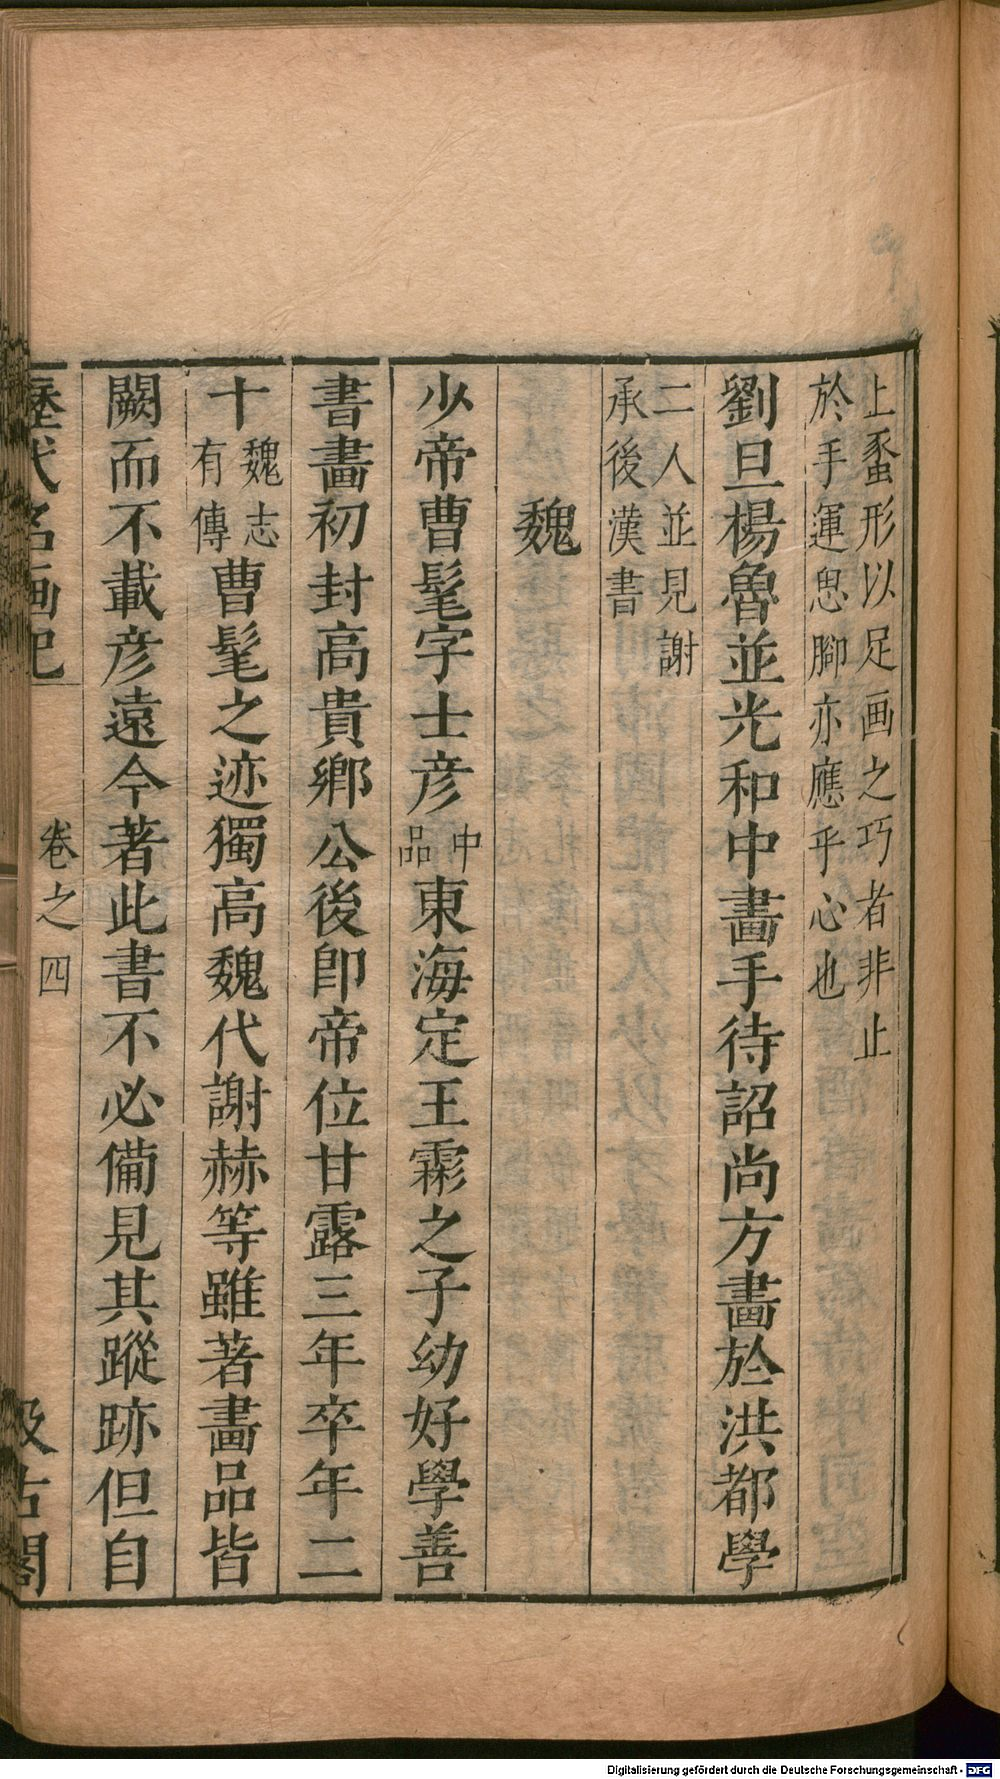 上豖形以足画之巧者非止
於手運思脚亦應乎心也
劉旦楊魯並光和中畫手待詔尚方畫於洪都學
二人並見謝
承後漢書
魏
少帝曹髦字士彦中品東海定王霖之子幼好學善
書畫初封高貴鄉公後即帝位甘露三年卒年二
十魏志有傳曹髦之迹獨高魏代謝赫等雖著畫品皆
闕而不載彦遠今著此書不必備見其蹤跡但自
歷代名画記 卷之四 汲古閣
Digitalisierung gefördert durch die Deutsche Forschungsgemeinschaft - DFG